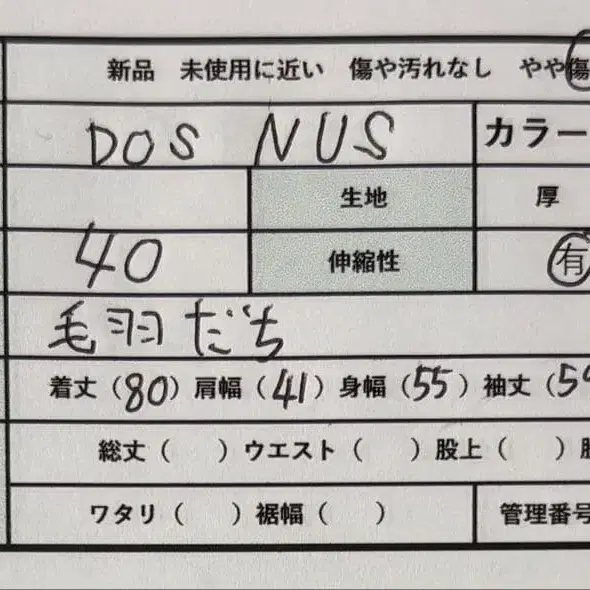 新品 未使用に近い 傷や汚れなし やや傷
DOS NUS カラー
生地 厚
40 伸縮性 有
毛羽だち
着丈（80）肩幅（41）身幅（55）袖丈（59
総丈（ ）ウエスト（ ）股上（ ）股
ワタリ（ ）裾幅（ ） 管理番号